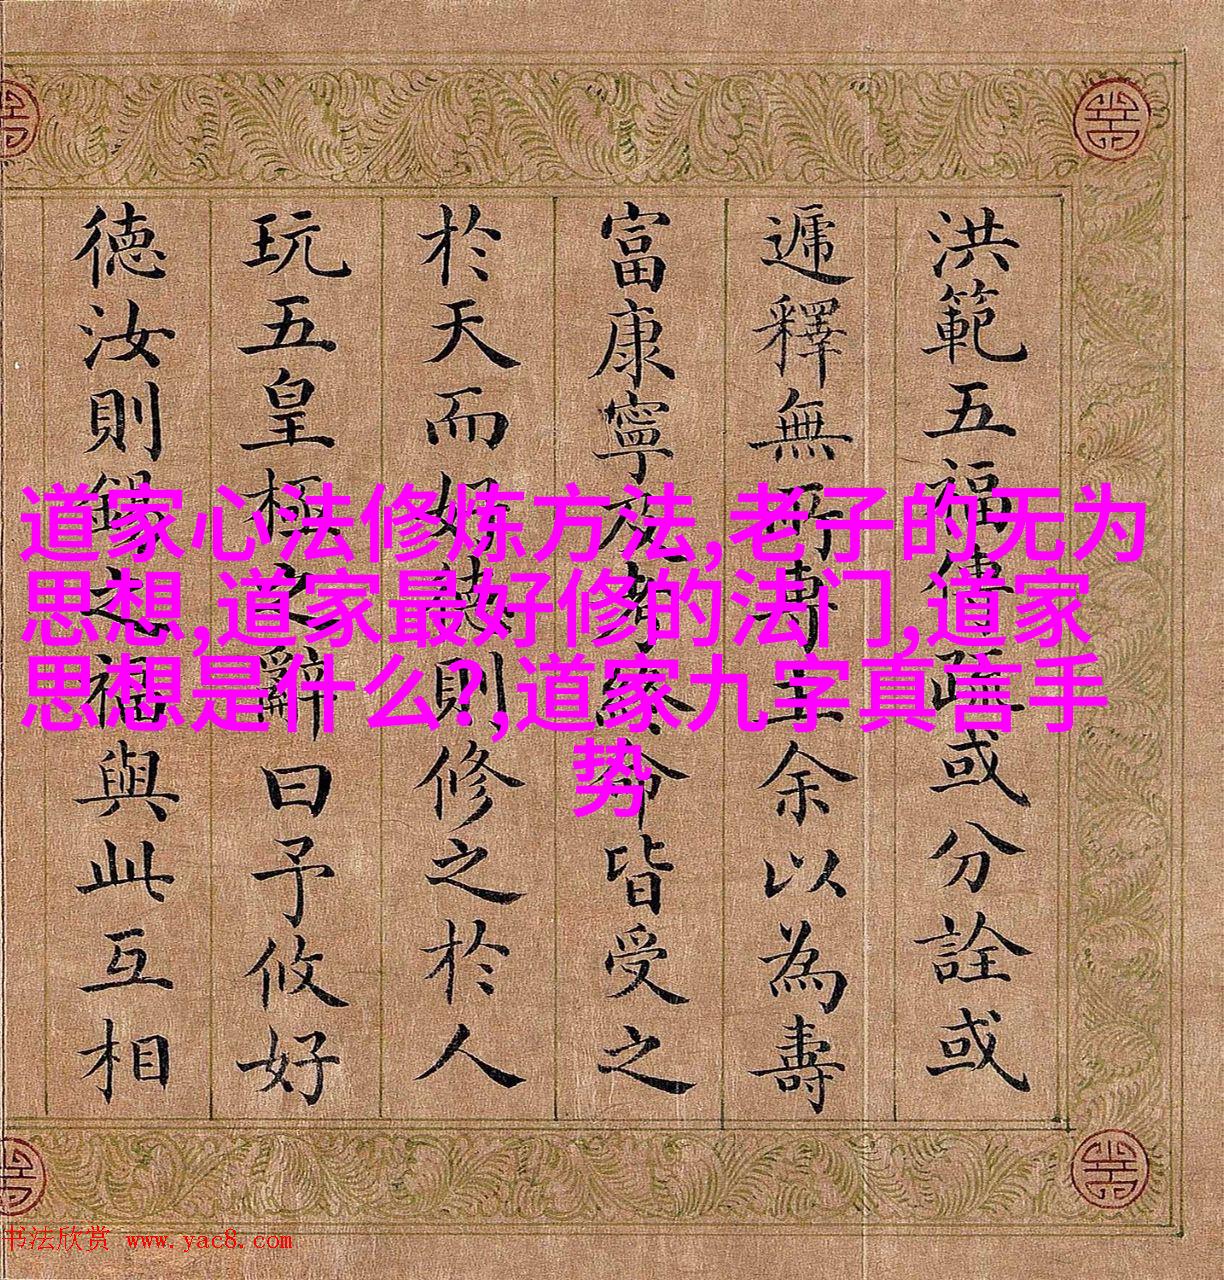 洪範五福傳疏或分詮或
遞釋無所專主余以為壽
富康寧終命皆受之
於天而好德則修之於人
玩五皇極之辭曰予攸好
德汝則錫之福與此互相
道家心法修炼方法,老子的无为
思想,道家最好修的法门,道家
思想是什么?,道家九字真言手
势
书法欣赏 www.yac8.com